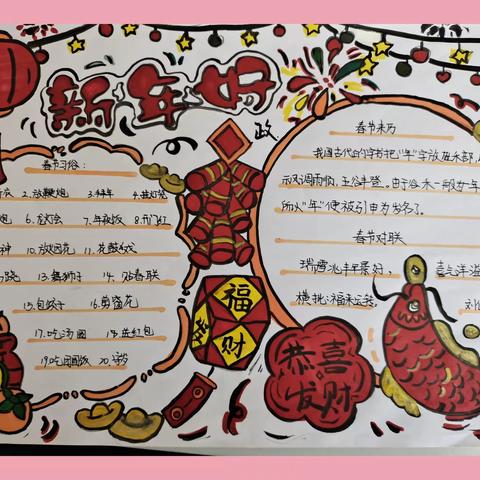 新年好
春节习俗:
2.放鞭炮 3.拜年
6.龙灯会 7.年夜饭 8.开门红
神 10.放烟花 11.花鼓戏
13.舞狮子 14.贴春联
15.包饺子 16.剪窗花
17.吃汤圆 18.发红包
19.吃团圆饭 20.
春节来历
我国古代的字书把"年"字放禾部,
示风调雨顺,五谷丰登。由于谷禾一般一年一
所以"年"便被引申为岁名了。
春节对联
瑞雪兆丰年景好, 喜气洋溢
横批:福来运转
福
财
恭喜
发财